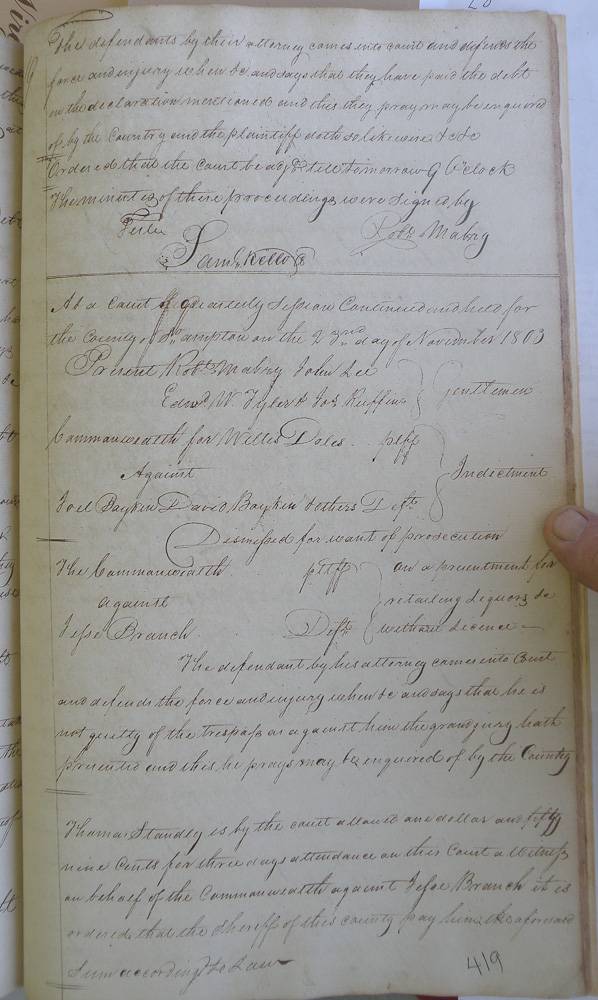 The defendants by their attorney comes into court and defends the
force and injury when &c and says that they have paid the debt
in the declaration mentioned and this they pray may be enquired
of by the Country and the plaintiff doth so likewise &c &c
Ordered that the Court be adjd till tomorrow 9 O'Clock
The minutes of these proceedings were signed by
Teste Robt. Mabry
Saml. Kello C
At a Court of Quarterly Session Continued and held for
the County of So.ampton on the 23nd day of November 1803
Present Robt. Mabry John Lee
Edwd. W. Tyler & Jos. Ruffin Gentlemen
Commonwealth for Willis Doles pltff
Against Indictment
Joel Boykin David Boykin & others Defts
Dismissed for want of prosecution
The Commonwealth pltff on a presentment for
against retailing liquors &c
Jesse Branch Deft without licence
The defendant by his attorney comes into Court
and defends the force and injury when &c and says that he is
not guilty of the trespass as against him the grand jury hath
presented and this he prays may be enquired of by the Country
Thomas Standley is by the court allowed one dollar and fifty
nine Cents for three days attendance on this Court a Witness
on behalf of the Commonwealth against Jesse Branch it is
ordered that the Sheriff of this county pay him the aforesaid
Sum according to Law
419